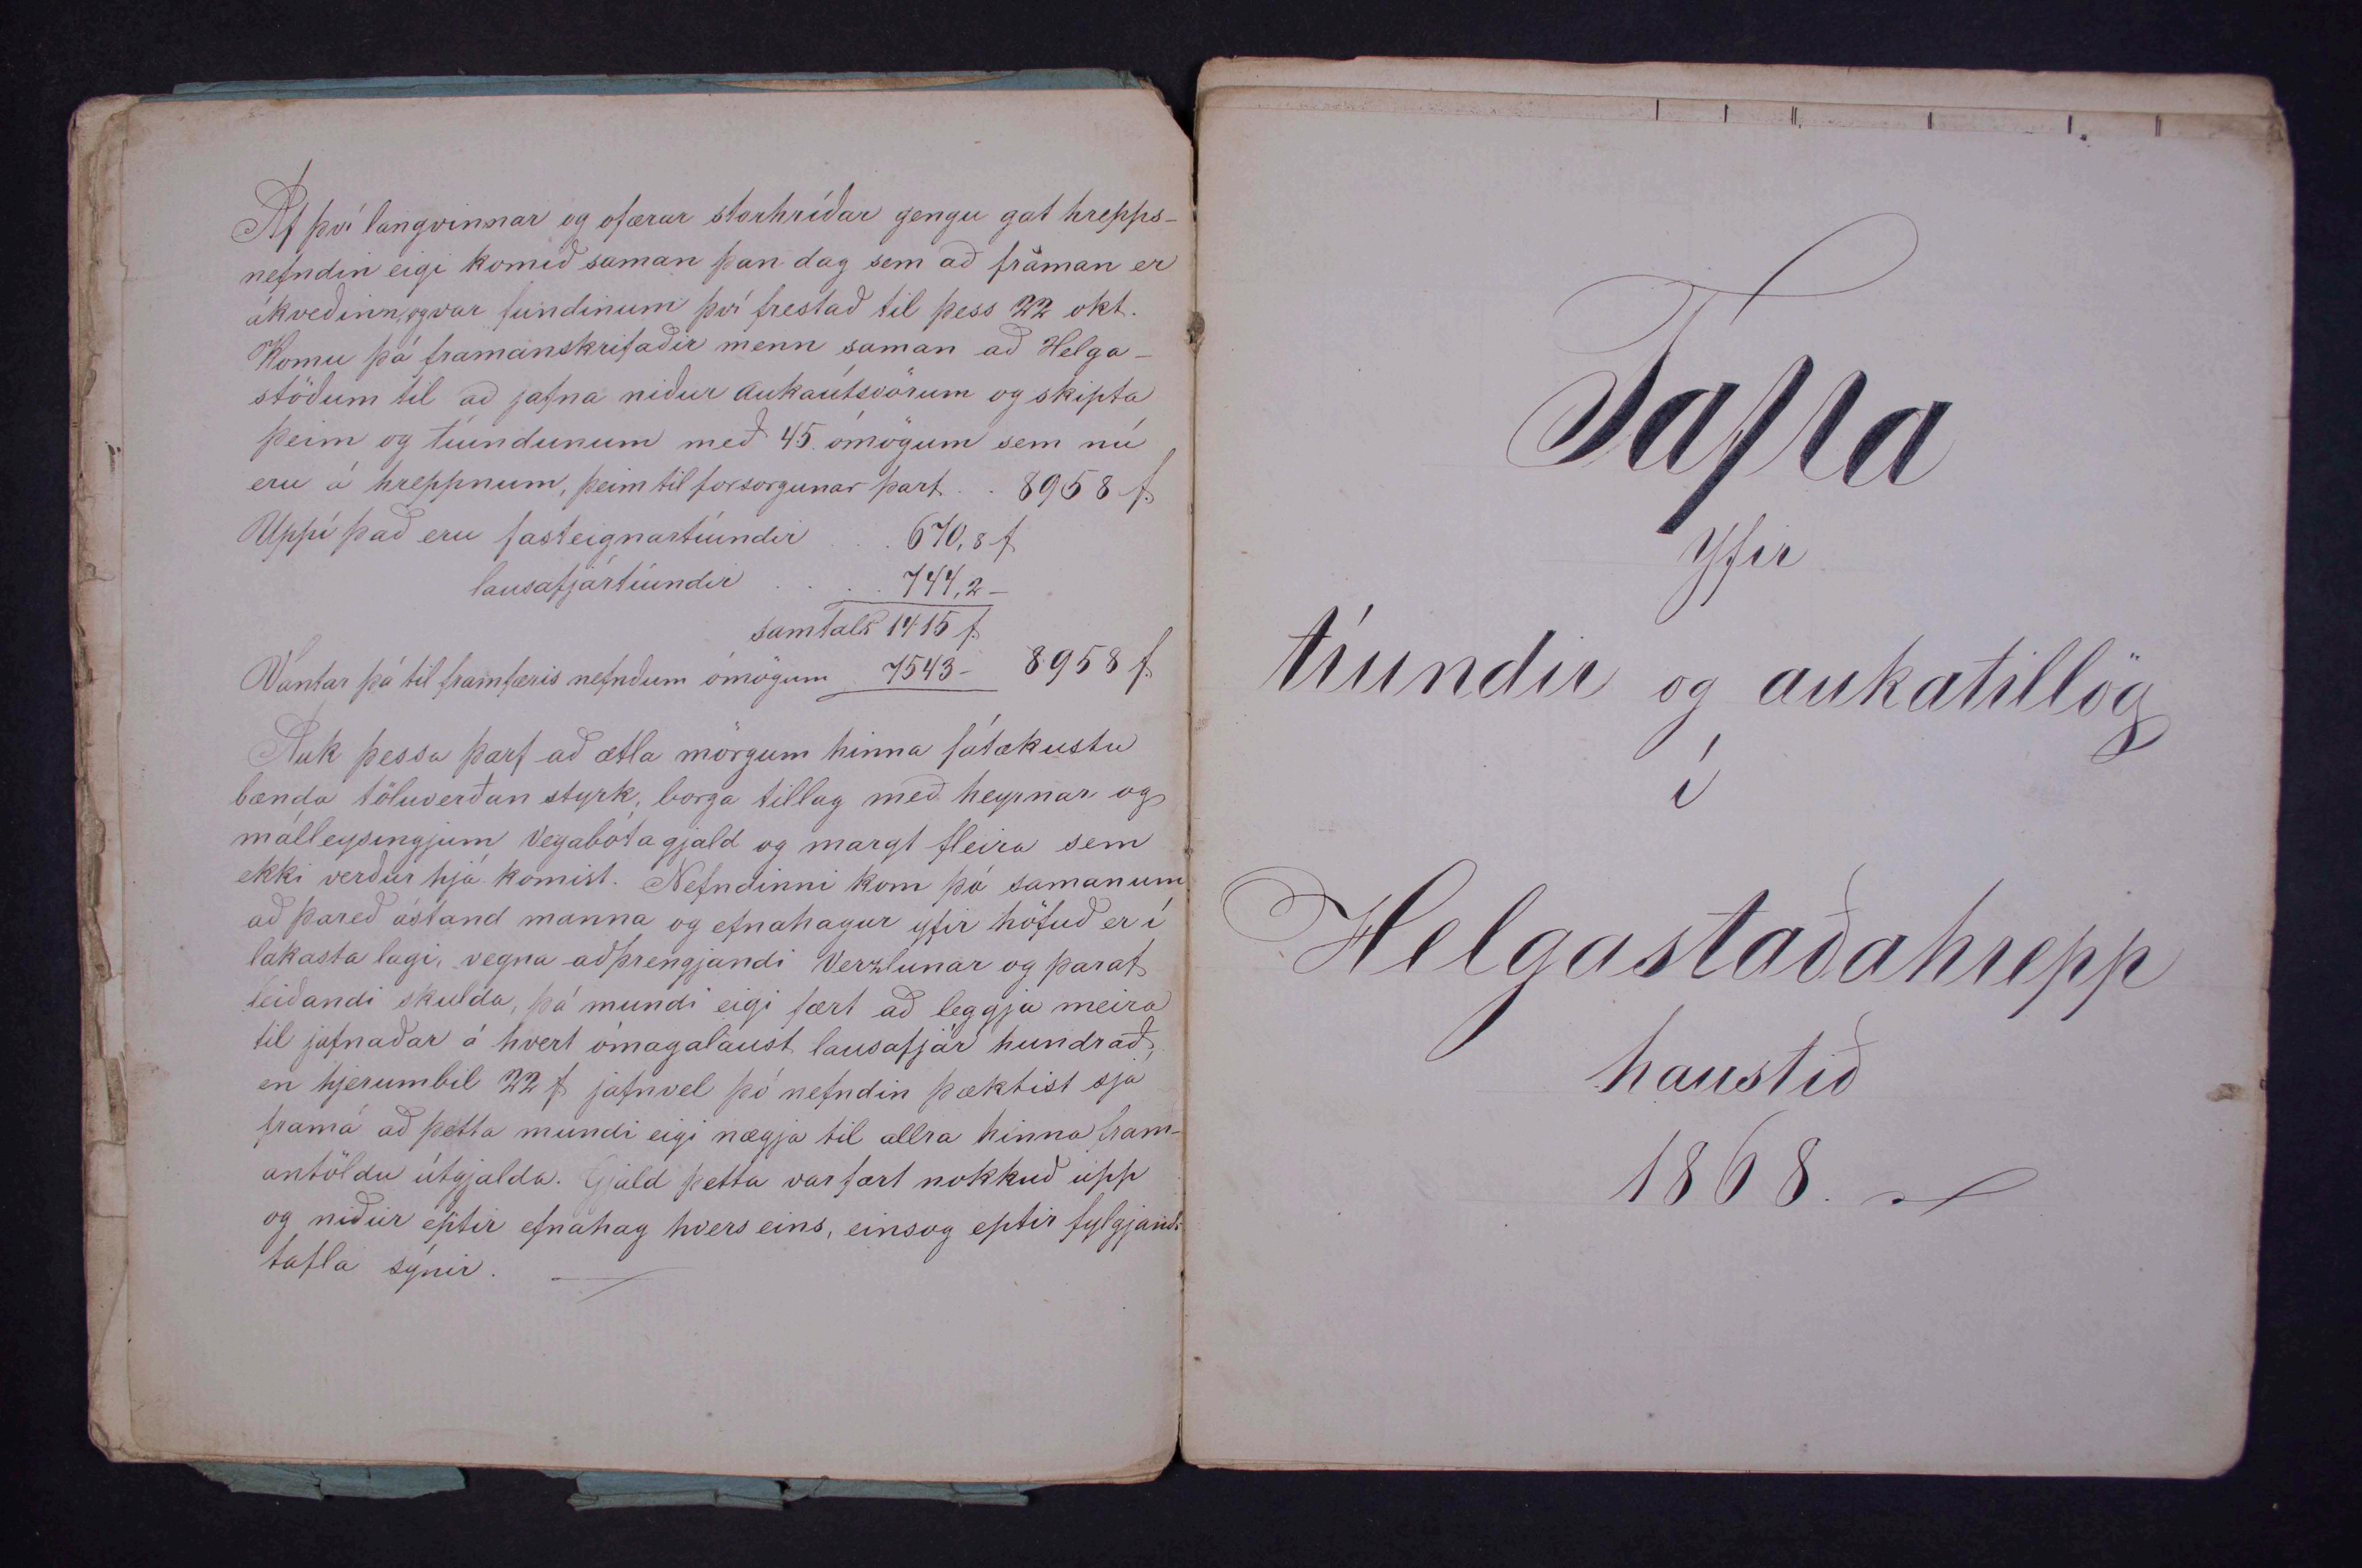 Af því langvinnar og ofærar storhríðar gengu gat hrepps-
nefndin eigi komið saman þan dag sem að framan er
ákveðinn, og var fundinum því frestað til þess 22 okt.
Komu þá framanskrifaðir menn saman að Helga-
stöðum til að jafna niður aukaútsvörum og skipta
þeim og tíundunum með 45 ómögum sem nú
eru á hreppnum, þeim til forsorgunar þarf . . 8958 f
Uppí það eru fasteignartíundir . . . 670,8 f
lausafjártíundir . . . . 744,2 -
samtals 1415 f
Vantar þá til framfæris nefndum ómögum 7543 - 8958 f
Auk þessa þarf að ætla mörgum hinna fátækustu
bænda töluverðan styrk, borga tillag með heyrnar og
málleysingjum Vegabótagjald og margt fleira sem
ekki verður hjá komist. Nefndinni kom þó saman um
að þareð ástand manna og efnahagur yfir höfuð er í
lakasta lagi, vegna aðþrengjandi Verzlunar og þaraf
leiðandi skulda, þá mundi eigi fært að leggja meira
til jafnaðar á hvert ómagalaust lausafjár hundrað,
en hjerumbil 22 f jafnvel þó nefndin þæktist sjá
framá að þetta mundi eigi nægja til allra hinna fram-
antöldu útgjalda. Gjald þetta var fært nokkuð upp
og niður eptir efnahag hvers eins, einsog eptir fylgjandi
tafla sýnir.
Tafla
yfir
tíundir og aukatillög
í
Helgastaðahrepp
haustið
1868.